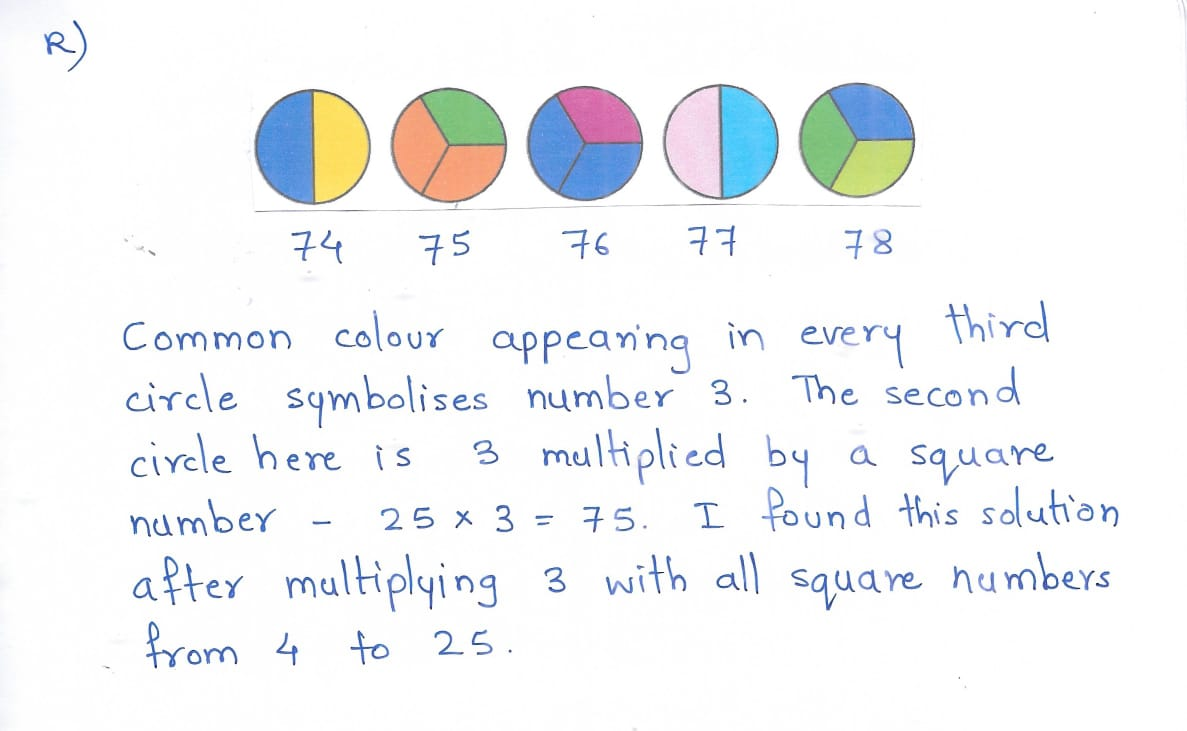 R)
74 75 76 77 78
Common colour appearing in every third
circle symbolises number 3. The second
circle here is 3 multiplied by a square
number - 25 x 3 = 75. I found this solution
after multiplying 3 with all square numbers
from 4 to 25.